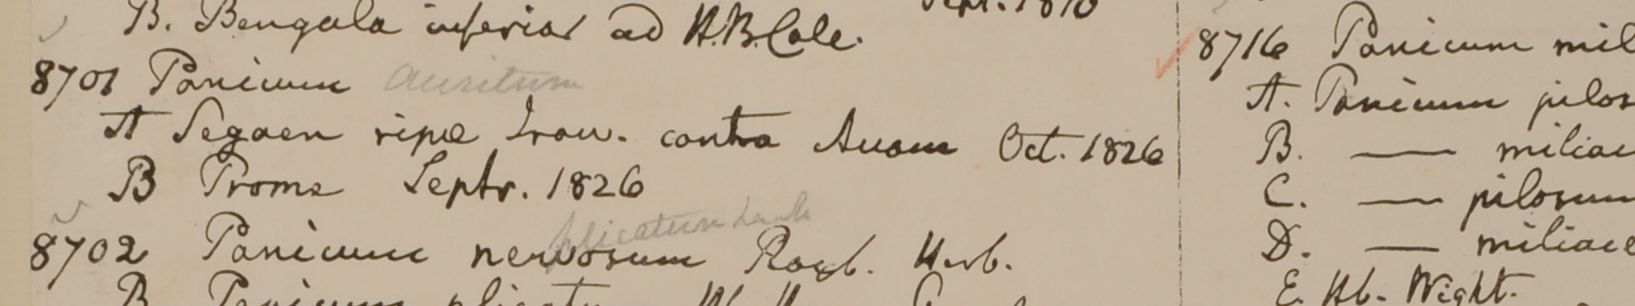 Sept. 1810
B. Bengala inferior ad H.B.Cole.
8701 Panicum auritum
A Segaen ripae Iraw. contra Avam Oct. 1826
B Prome Septr. 1826
plicatum Lamk
8702 Panicum nervosum Roxb. Herb.
B Panicum plicatu
8716 Panicum mil
A. Panicum pilos
B. — miliac
C. — pilosum
D. — miliace
E. Hb. Wight.